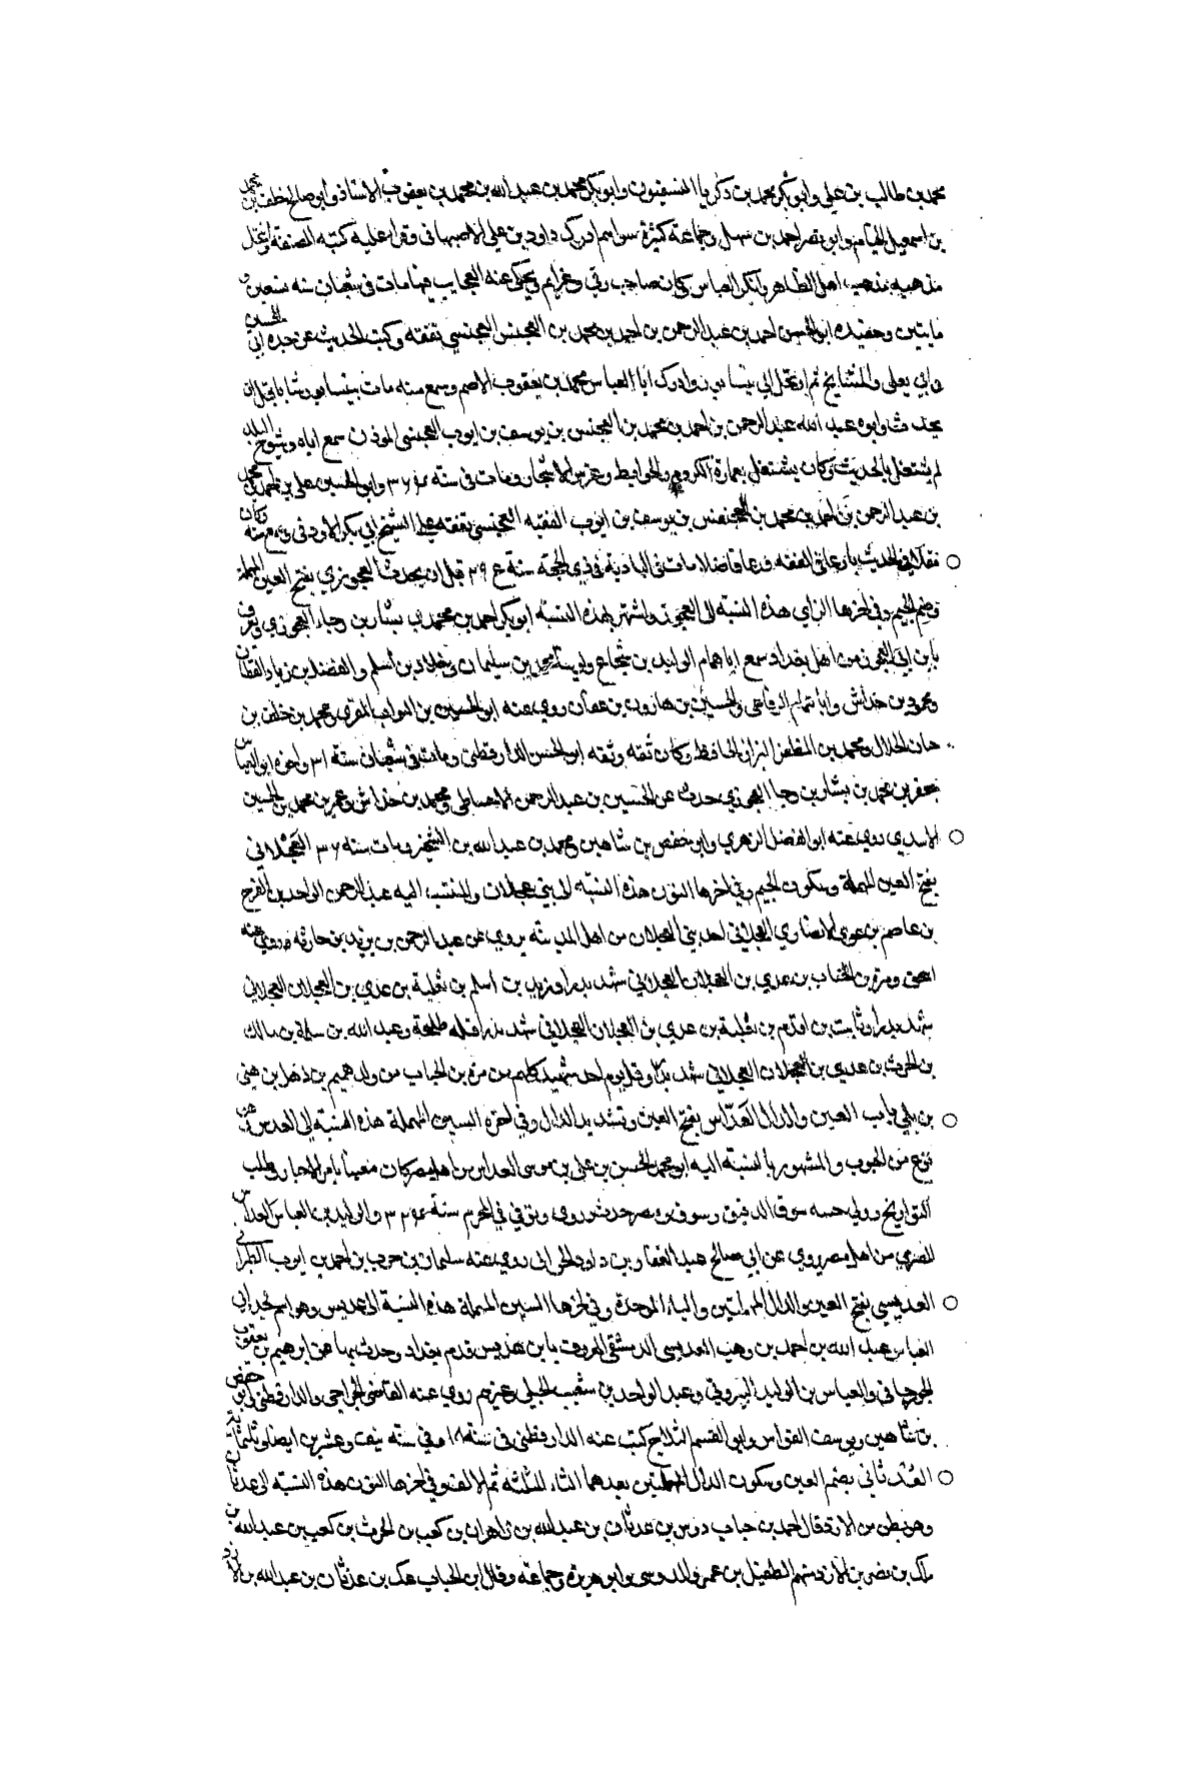 محمد بن طالب بن علي وابو بكر محمد بن زكريا النسفيون وابو بكر محمد بن عبد الله بن محمد بن يعقوب الاستاذ وابو صالح خلف بن محمد
بن اسمعيل الخيام وابو نصر احمد بن سهل وجماعة كثيرة سواهم ادرك داود بن علي الاصبهاني وقرا عليه كتبه المصنفة وانتحل
مذهبه مذهب اهل الظاهر وكان ابو العباس كان صاحب رقي وعزايم ويحكى عنه العجايب فيها مات في شعبان سنه سبعين و
مايتين وحفيده ابو الحسن احمد بن عبد الرحمن بن احمد بن محمد بن العجنس العجنسي تفقه وكتب الحديث عن جده ابي الحسين
وابي يعلى والمشايخ ثم ارتحل الى نيسابور وادرك ابا العباس محمد بن يعقوب الاصم وسمع منه مات بنيسابور شابا قبل ان
يحدث وابوه عبد الله عبد الرحمن بن احمد بن محمد بن العجنس بن يوسف بن ايوب العجنسي الموذن سمع اباه وشيوخ البلد
لم يشتغل بالحديث وكان يشتغل بعمارة الكروم والحوايط وغرس الاشجار ومات في سنة وابو الحسين علي بن احمد بن محمد
بن عبد الرحمن بن احمد بن محمد بن العجنس بن يوسف بن ايوب الفقيه العجنسي تفقه على الشيخ ابي بكر الاودني وسمع منه وكان
في الحديث بارعا في الفقه ورعا فاضلا مات في البادية في ذي الحجة سنة قبل ان يحدث العجوزي بفتح العين المهملة
وضم الجيم وفي اخرها الزاي هذه النسبة الى العجوز واشتهر بهذه النسبة ابو بكر احمد بن محمد بن بشار بن رجاء العجوزي ويعرف
بابن ابي العجوز من اهل بغداد سمع ابا همام الوليد بن شجاع ولوينا محمد بن سليمان وخلاد بن اسلم والفضل بن زياد القطان
ومحمود بن خداش وابا تمام الرفاعي والحسين بن هارون بن عفان روى عنه ابو الحسين بن البواب المقري ومحمد بن خلف بن
الخلال ومحمد بن المظفر البزاز الحافظ وكان ثقه وثقه ابو الحسن الدارقطني ومات في شعبان سنة ٣١١ واخوه ابو العباس
جعفر بن محمد بن بشار بن رجا العجوزي حدث عن الحسين بن عبد الرحمن ومحمد بن خداش وعمر بن محمد بن الحسين
الاسدي روى عنه ابو الفضل الزهري وابو حفص بن شاهين ومحمد بن عبد الله بن الشخير ومات سنة العجلاني
بفتح العين المهملة وسكون الجيم وفي اخرها النون هذه النسبة الى بني عجلان والمنتسب اليه عبد الرحمن الواحد بن الفرج
بن عاصم بن عدي الانصاري العجلاني احد بني العجلان من اهل المدينه يروي عن عبد الرحمن بن يزيد بن حارثه روى عنه
اسحق ومرة بن الحباب بن عدي بن العجلان العجلاني شهد بدرا وزيد بن اسلم بن ثعلبة بن عدي بن العجلان العجلاني
شهد بدرا وثابت بن اقرم بن ثعلبة بن عدي بن العجلان العجلاني شهد بدرا قتله طلحة وعبد الله بن سلمة بن مالك
بن الحرث بن عدي بن العجلان العجلاني شهد بدرا وقتل يوم احد شهيدا كلهم من مرة بن الحباب من ولد هميم بن ذهل بن هني
بن بلي باب العين والدال العدّاس بفتح العين وتشديد الدال وفي اخره السين المهملة هذه النسبة الى العدس وهي
نوع من الحبوب والمشهور بالنسبة اليه ابو محمد الحسن بن علي بن موسى العداس من اهل مصر كان معينا بامر الاخبار وطلب
التواريخ وولي حسبه سوق الدقيق وسوق بمصر حدث وروى وتوفي في المحرم سنة والوليد بن العباس العداس
المصري من اهل مصر يروي عن ابي صالح عبد الغفار بن داود الحراني روى عنه سليمان بن احمد بن ايوب الطبراني
العدبسي بفتح العين والدال المهملتين والباء الموحدة وفي اخرها السين المهملة هذه النسبة الى عدبس وهو اسم لجد ابي
العباس عبد الله بن احمد بن وهيب العدبسي الدمشقي المعروف بابن عدبس قدم بغداد وحدث بها عن ابراهيم بن يعقوب
الجوزجاني والعباس بن الوليد البيروتي وعبد الواحد بن شعيب الجبلي وغيرهم روى عنه القاضي الجراحي والدارقطني وابو حفص
بن شاهين ويوسف القواس وابو القسم الثلاج كتب عنه الدارقطني في سنة وفي سنه نيف وعشرين ايضا وثلثماية
العدثاني بضم العين وسكون الدال المهملتين بعدهما الثاء المثلثه ثم الالف وفي اخرها النون هذه النسبة الى عدثان
وهو بطن من الازد قال احمد بن حباب دوس بن عدثان بن عبد الله بن زاهران بن كعب بن الحرث بن كعب بن عبد الله بن
مالك بن نصر بن الازد منهم الطفيل بن عمرو الدوسي وابو هريرة وجماعة وقال ابن الحباب عك بن عدثان بن عبد الله بن الازد